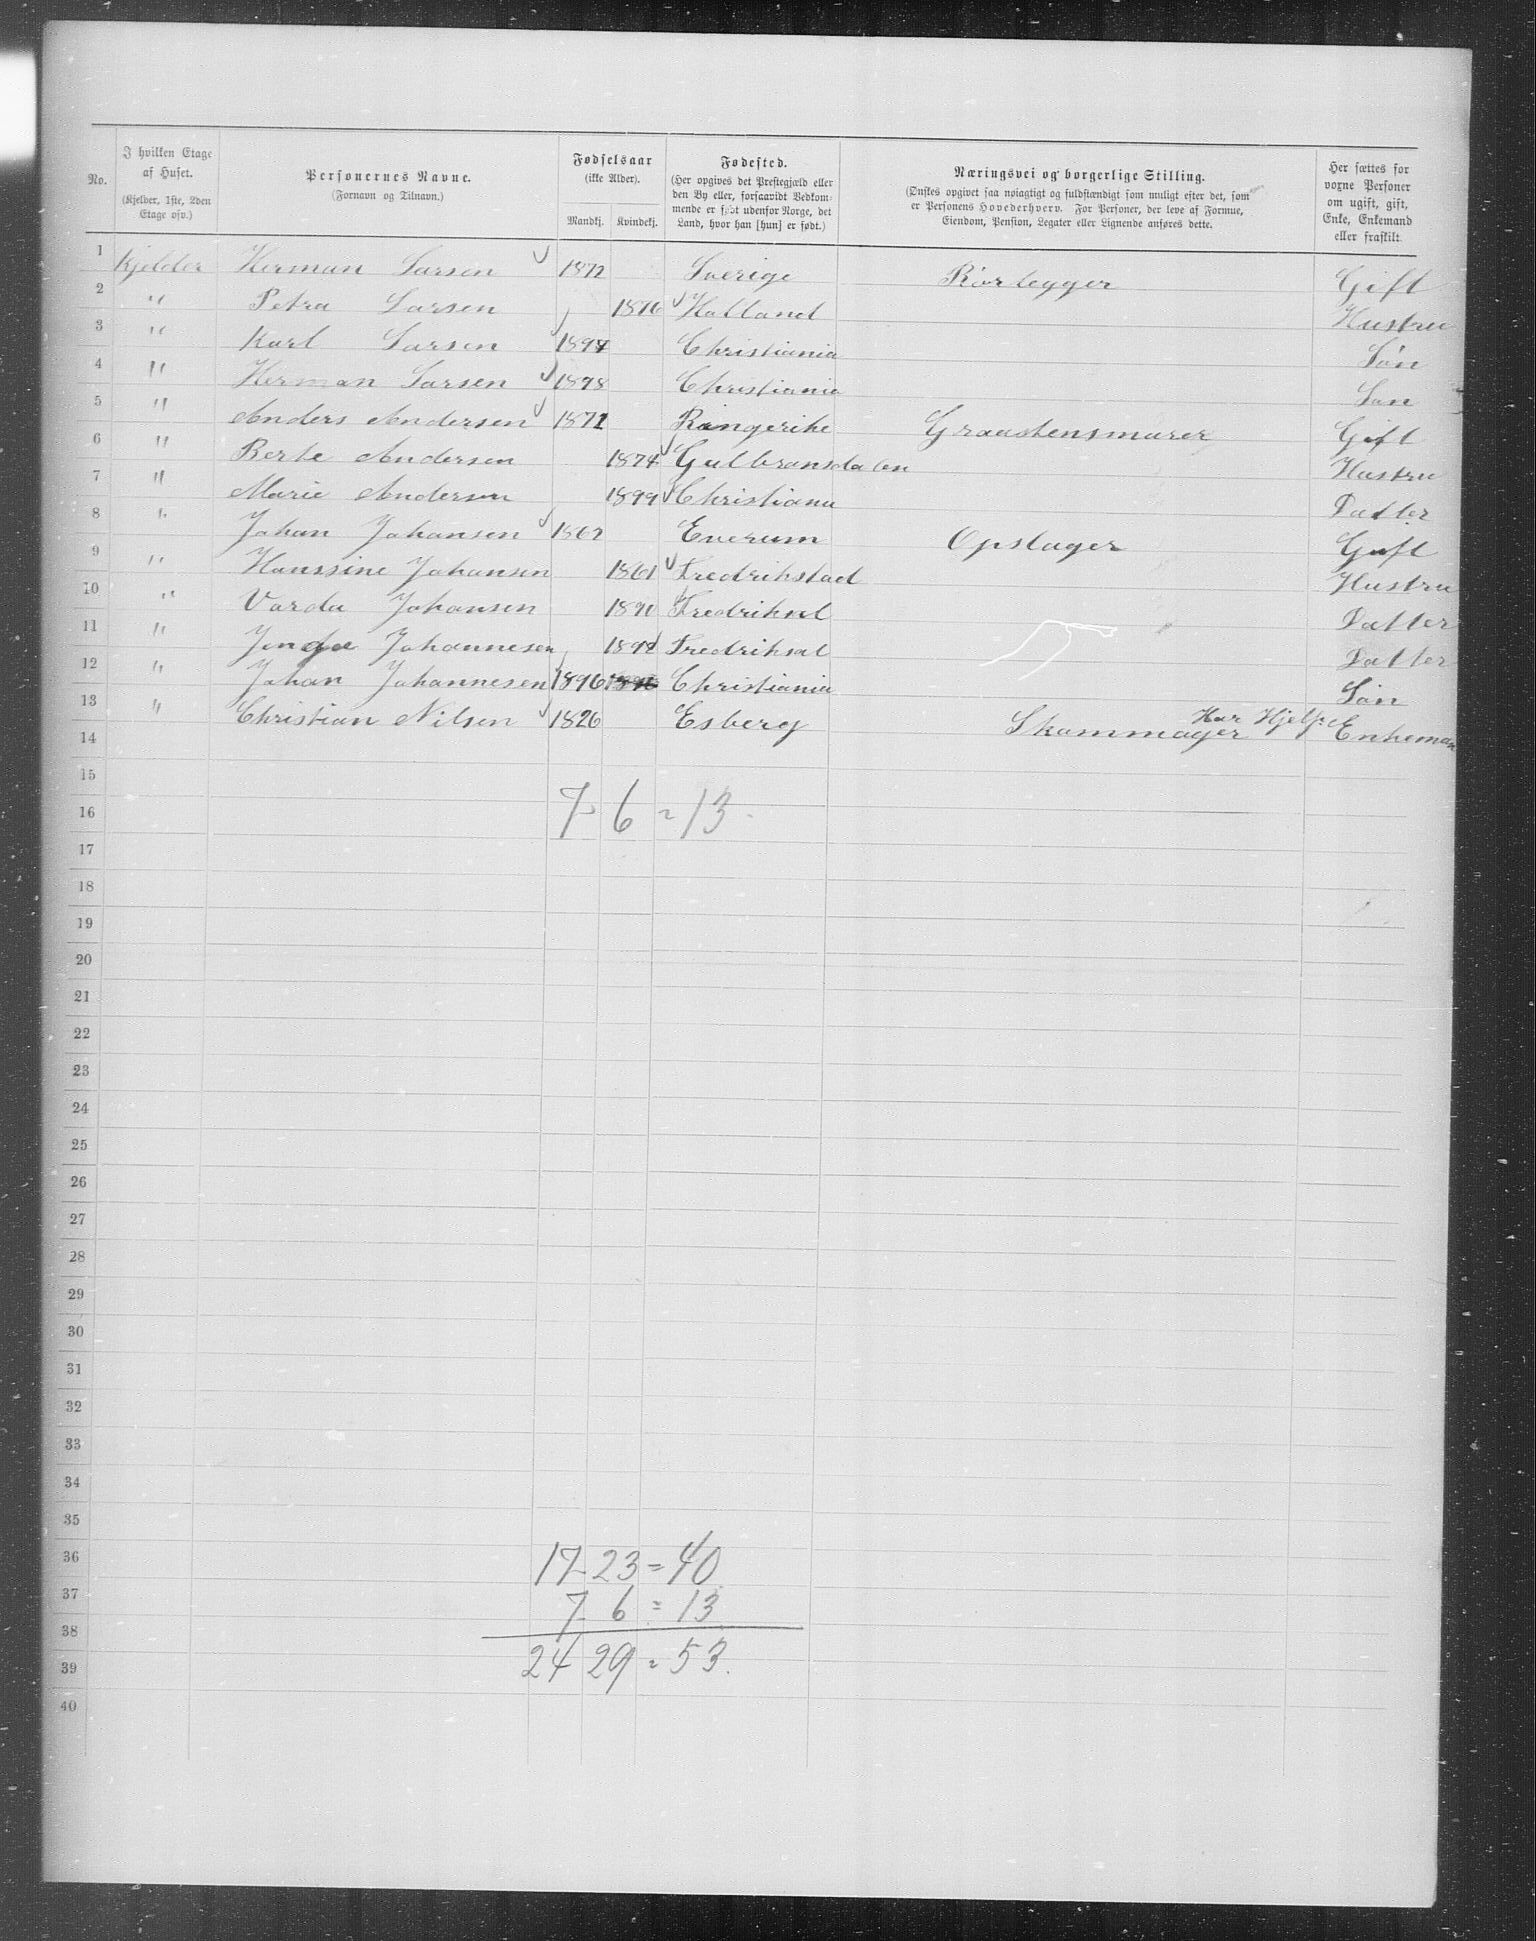 No.
I hvilken Etage af Huset. (Kjelder, 1ste, 2den Etage osv.)
Personernes Navne. (Fornavn og Tilnavn.)
Fødselsaar (ikke Alder). Mandkj. Kvindekj.
Fødested. (Her opgives det Prestegjæld eller den By eller, forsaavidt Vedkommende er født udenfor Norge, det Land, hvor han [hun] er født.)
Næringsvei og borgerlige Stilling. (Ønskes opgivet saa nøiagtigt og fuldstændigt som muligt efter det, som er Personens Hovederhverv. For Personer, der leve af Formue, Eiendom, Pension, Legater eller Lignende anføres dette.)
Her sættes for voxne Personer om ugift, gift, Enke, Enkemand eller fraskilt.
1 Kjelder Herman Larsen 1872 Sverige Rörlegger Gift
2 " Petra Larsen 1876 Halland Hustru
3 " Karl Larsen 1897 Christiania Sön
4 " Herman Larsen 1898 Christiania Sön
5 " Anders Andersen 1871 Ringerike Graastensmurer Gift
6 " Berte Andersen 1874 Gulbransdalen Hustru
7 " Marie Andersen 1899 Christiana Datter
8 " Johan Johansen 1862 Everum Opslager Gift
9 " Hanssine Johansen 1861 Fredrikstad Hustru
10 " Varda Johansen 1890 Datter
11 " Johannesen Datter
12 " Johan Johannesen 1896 Christiania Sön
13 " Christian Nilsen 1826 Esberg Skommager Har Hjelp Enkeman
14
15
7 6 = 13
16
17
18
19
20
21
22
23
24
25
26
27
28
29
30
31
32
33
34
35
36 17 23 = 40
37 7 6 = 13
38
39 24 29 = 53.
40